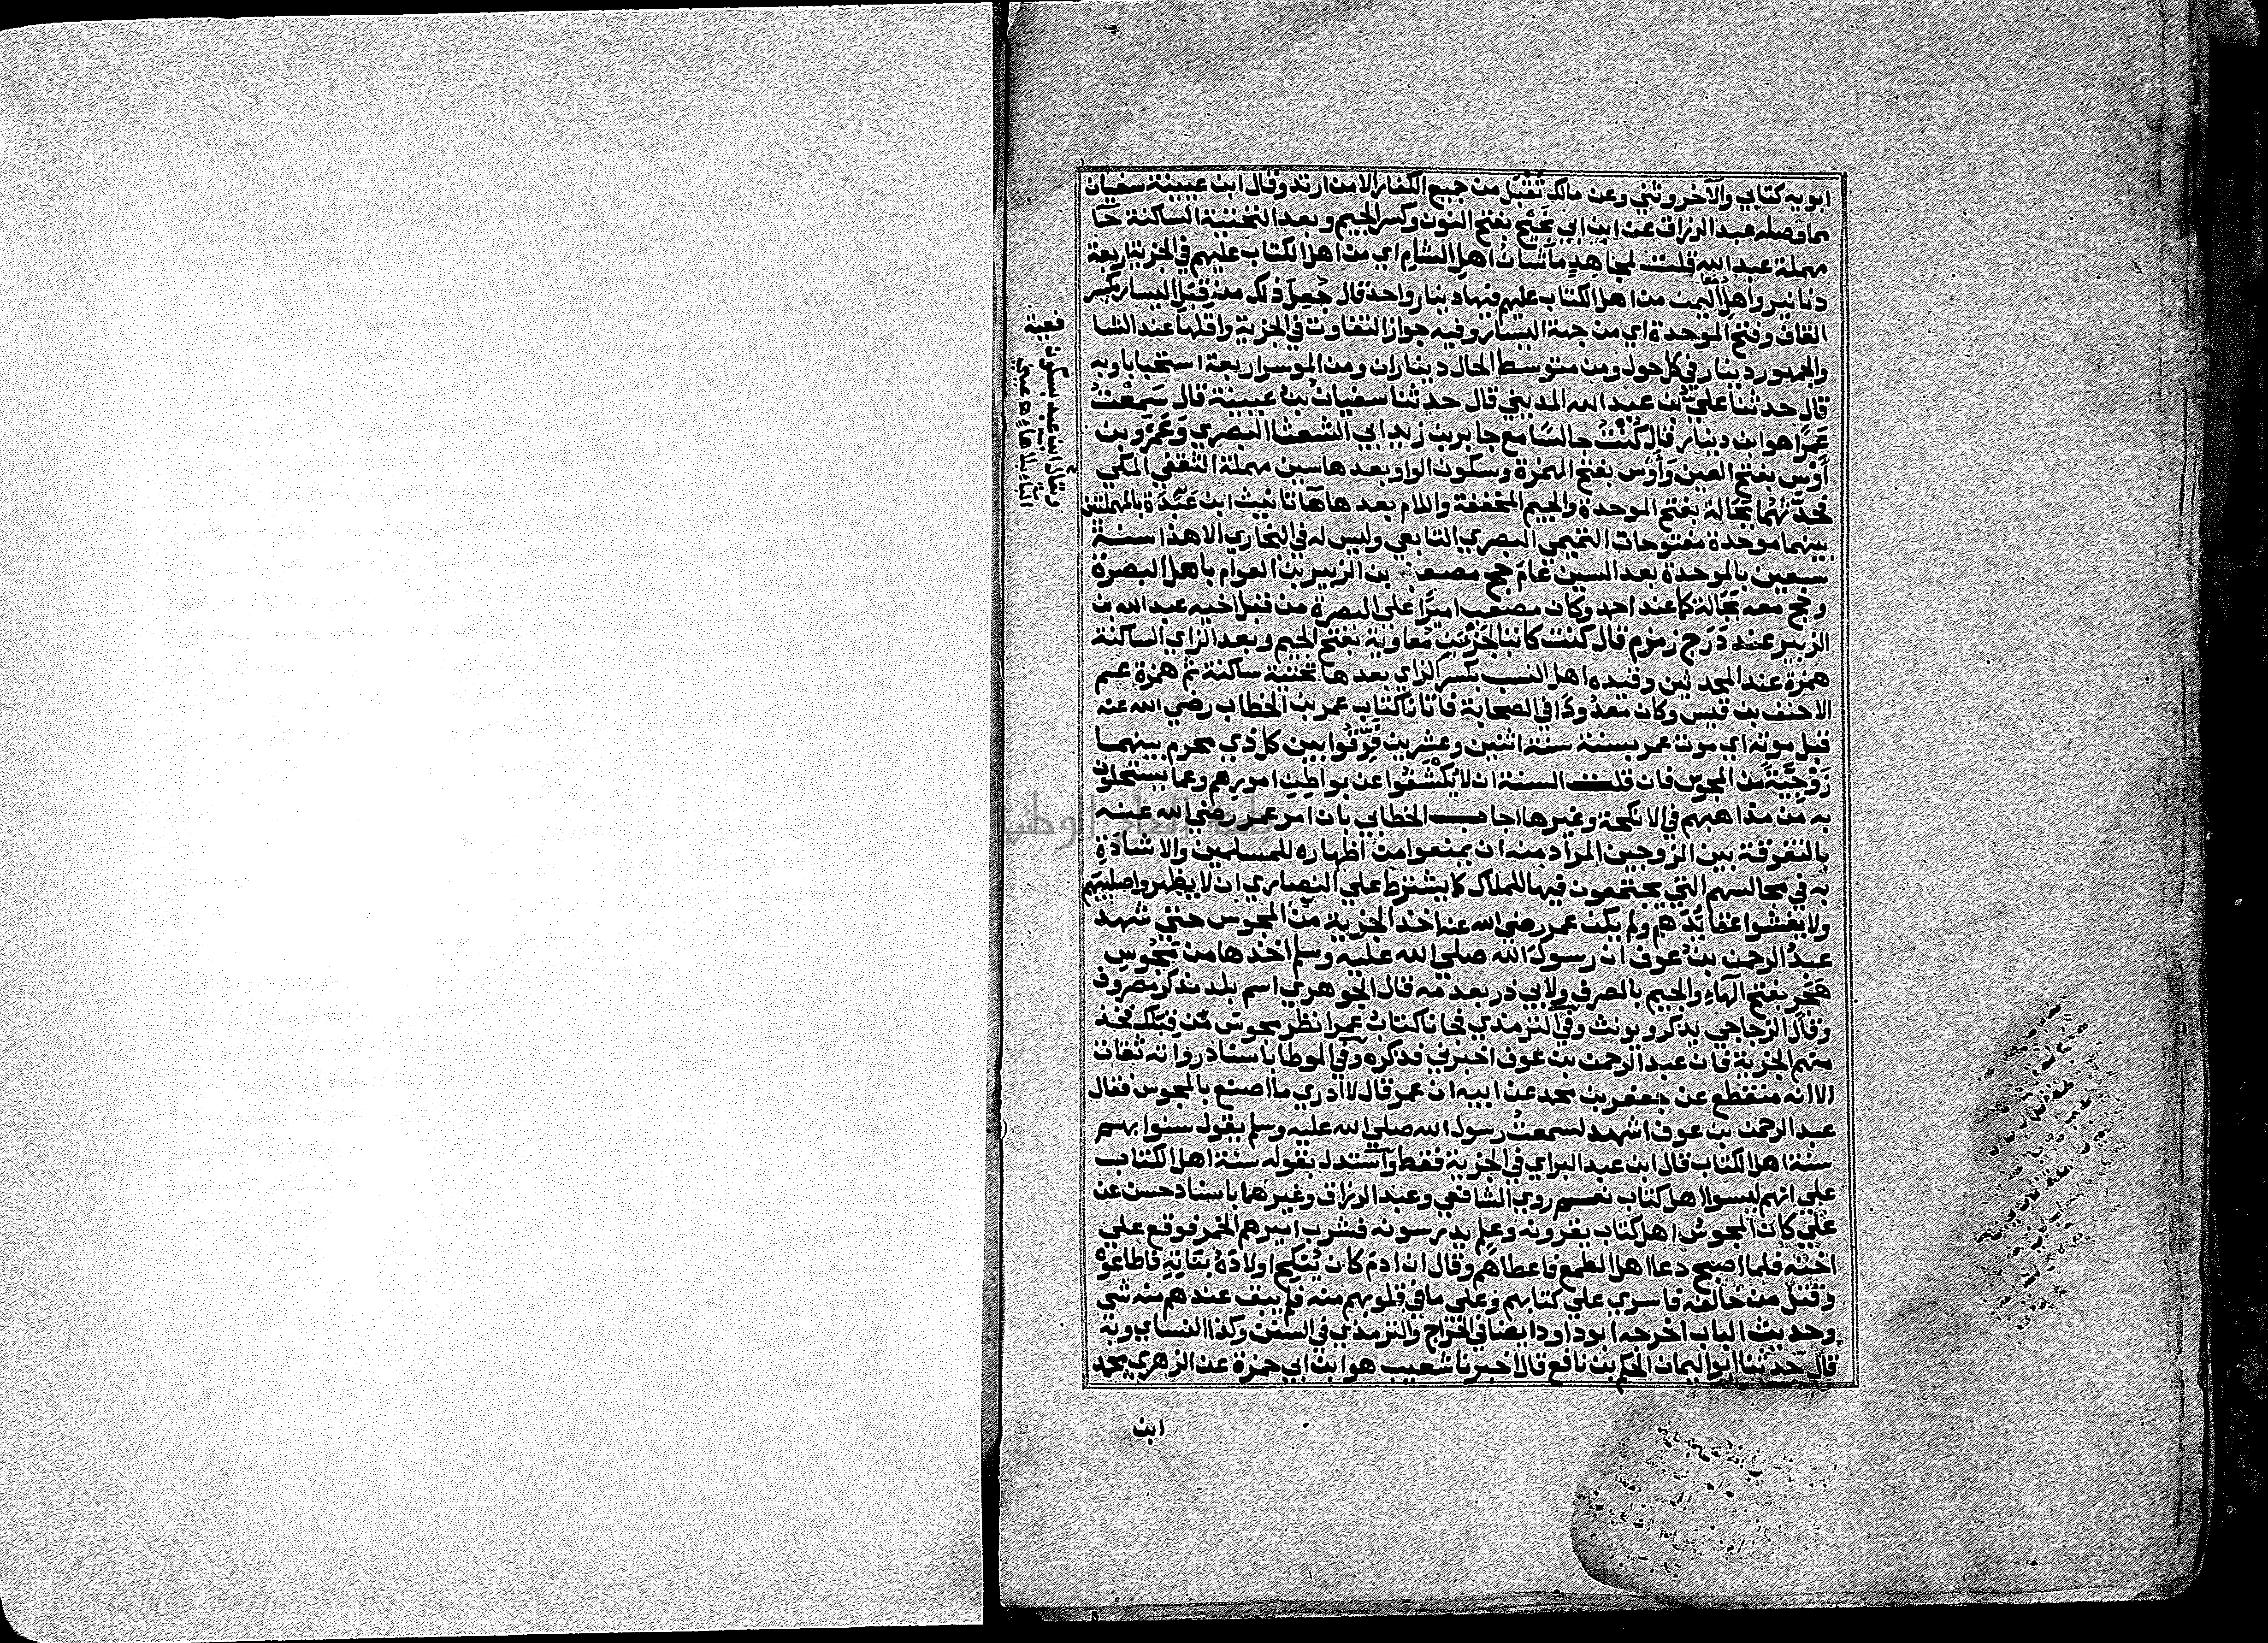 ابويه كتابي والآخر وثني وعن مالك تُقبَل من جميع الكفار الا من ارتد وقال ابن عيينة سفيان
مما وصله عبد الرزاق عن ابن ابي نجيح بفتح النون وكسر الجيم وبعد التحتية الساكنة حآ
مهملة عبد الله قلت لمجاهدٍ ما شان اهل الشام اي من اهل الكتاب عليهم في الجزية اربعة
دنانير واهل اليمن من اهل الكتاب عليهم فيها دينار واحد قال جُعِل ذلك من قِبَل اليسار بكسر
القاف وفتح الموحدة اي من جهة اليسار وفيه جواز التفاوت في الجزية واقلها عند الشا
فعية
والجمهور دينار في كل حول ومن متوسط الحال ديناران ومن الموسر اربعة استحبابا وبه
قال حدثنا علي بن عبد الله المديني قال حدثنا سفيان بن عيينة قال سَمِعتُ
عَمرًا هو ابن دينار قال كُنْتُ جالسًا مع جابر بن زيد ابي الشعثا البصري وعَمرو بن
أَوْس بفتح العين وأوْس بفتح الهمزة وسكون الواو بعدها سين مهملة الثقفي المكي
فحدَّثهُما بَجَالَة بفتح الموحدة والجيم المخففة واللام بعدها هآ تانيث ابن عَبَدَة بالمهملتين
بينهما موحدة مفتوحات التميمي البصري التابعي وليس له في البخاري الا هذا سنة
سبعين بالموحدة بعد السين عَامَ حج مصعب بن الزبير بن العوام باهل البصرة
وحج معه بَجَالة كما عند احمد وكان مصعب اميرًا على البصرة من قبل اخيه عبد الله بن
الزبير عند دَرَج زمزم قال كنت كاتبا لجَزْءِ بن معاوية بفتح الجيم وبعد الزاي الساكنة
همزة عند المحدثين وقيده اهل النسب بكسر الزاي بعدها تحتية ساكنة ثم همزة عم
الاحنف بن قيس وكان معدودًا في الصحابة فاتانا كتاب عمر بن الخطاب رضي الله عنه
قبل موته اي موت عمر بسنة سنة اثنين وعشرين فَرِّقُوا بين كل ذي محرم بينهما
زَوْجِيَّة من المجوس فان قلت السنة ان لا يُكْشَفُوا عن بواطن امورهم وعما يستحلون
به من مذاهبهم في الانكحة وغيرها اجاب الخطابي بان امر عمر رضي الله عنه
بالتفرقة بين الزوجين المراد منه ان يمنعوا من اظهاره للمسلمين والاشادَةِ
به في مجالسهم التي يجتمعون فيها للملاك كما يشترط علي النصاري ان لا يظهروا صليبهم
ولا يفشوا عقايدَهم ولم يكن عمر رضي الله عنه اخذ الجزية من المجوس حتي شهد
عبدُ الرحمن بنُ عوف ان رسولَ الله صلي الله عليه وسلم اخذها من مَجُوسِ
هَجَرٍ بفتح الهآء والجيم بالصرف ولابي ذر بعدمه قال الجوهري اسم بلد مذكر مصروف
وقال الزجاجي يذكر ويونث وفي الترمذي فجانا كتابُ عمر انظر مجوسَ مَن قِبَلَك فخذ
منهم الجزية فان عبد الرحمن بن عوف اخبرني فذكره وفي الموطا باسناد رواته ثقات
الا انه منقطع عن جعفر بن محمد عن ابيه ان عمر قال لا ادري ما اصنع بالمجوس فقال
عبد الرحمن بن عوف اشهد لسمعتُ رسول الله صلي الله عليه وسلم يقول سنوا بهم
سنة اهل الكتاب قال ابن عبد البر اي في الجزية فقط واستدل بقوله سنة اهل الكتاب
علي انهم ليسوا اهل كتاب نعم روي الشافعي وعبد الرزاق وغيرهما باسناد حسن عن
علي كان المجوسُ اهل كتاب يقرونه وعلم يدرسونه فشرب اميرهم الخمر فوقع علي
اخته فلما اصبح دعا اهل الطمع فاعطاهم وقال ان ادمَ كان يُنكِح اولادَهُ بَنَاتِهِ فاطاعوْهُ
وقتل من خالفه فاسري علي كتابهم وعلي ما في قلوبهم منه فلم يبق عندهم منه شي
وحديث الباب اخرجه ابو داود ايضا في الخراج والترمذي في السنن وكذا النساي وبه
قال حدثنا ابو اليمان الحكم بن نافع قال اخبرنا شعيب هو ابن ابي حمزة عن الزهري محمد
ابن
ويقال ابن عبد بسكون
الباء بلا هاء
جامعة النجاح الوطنية